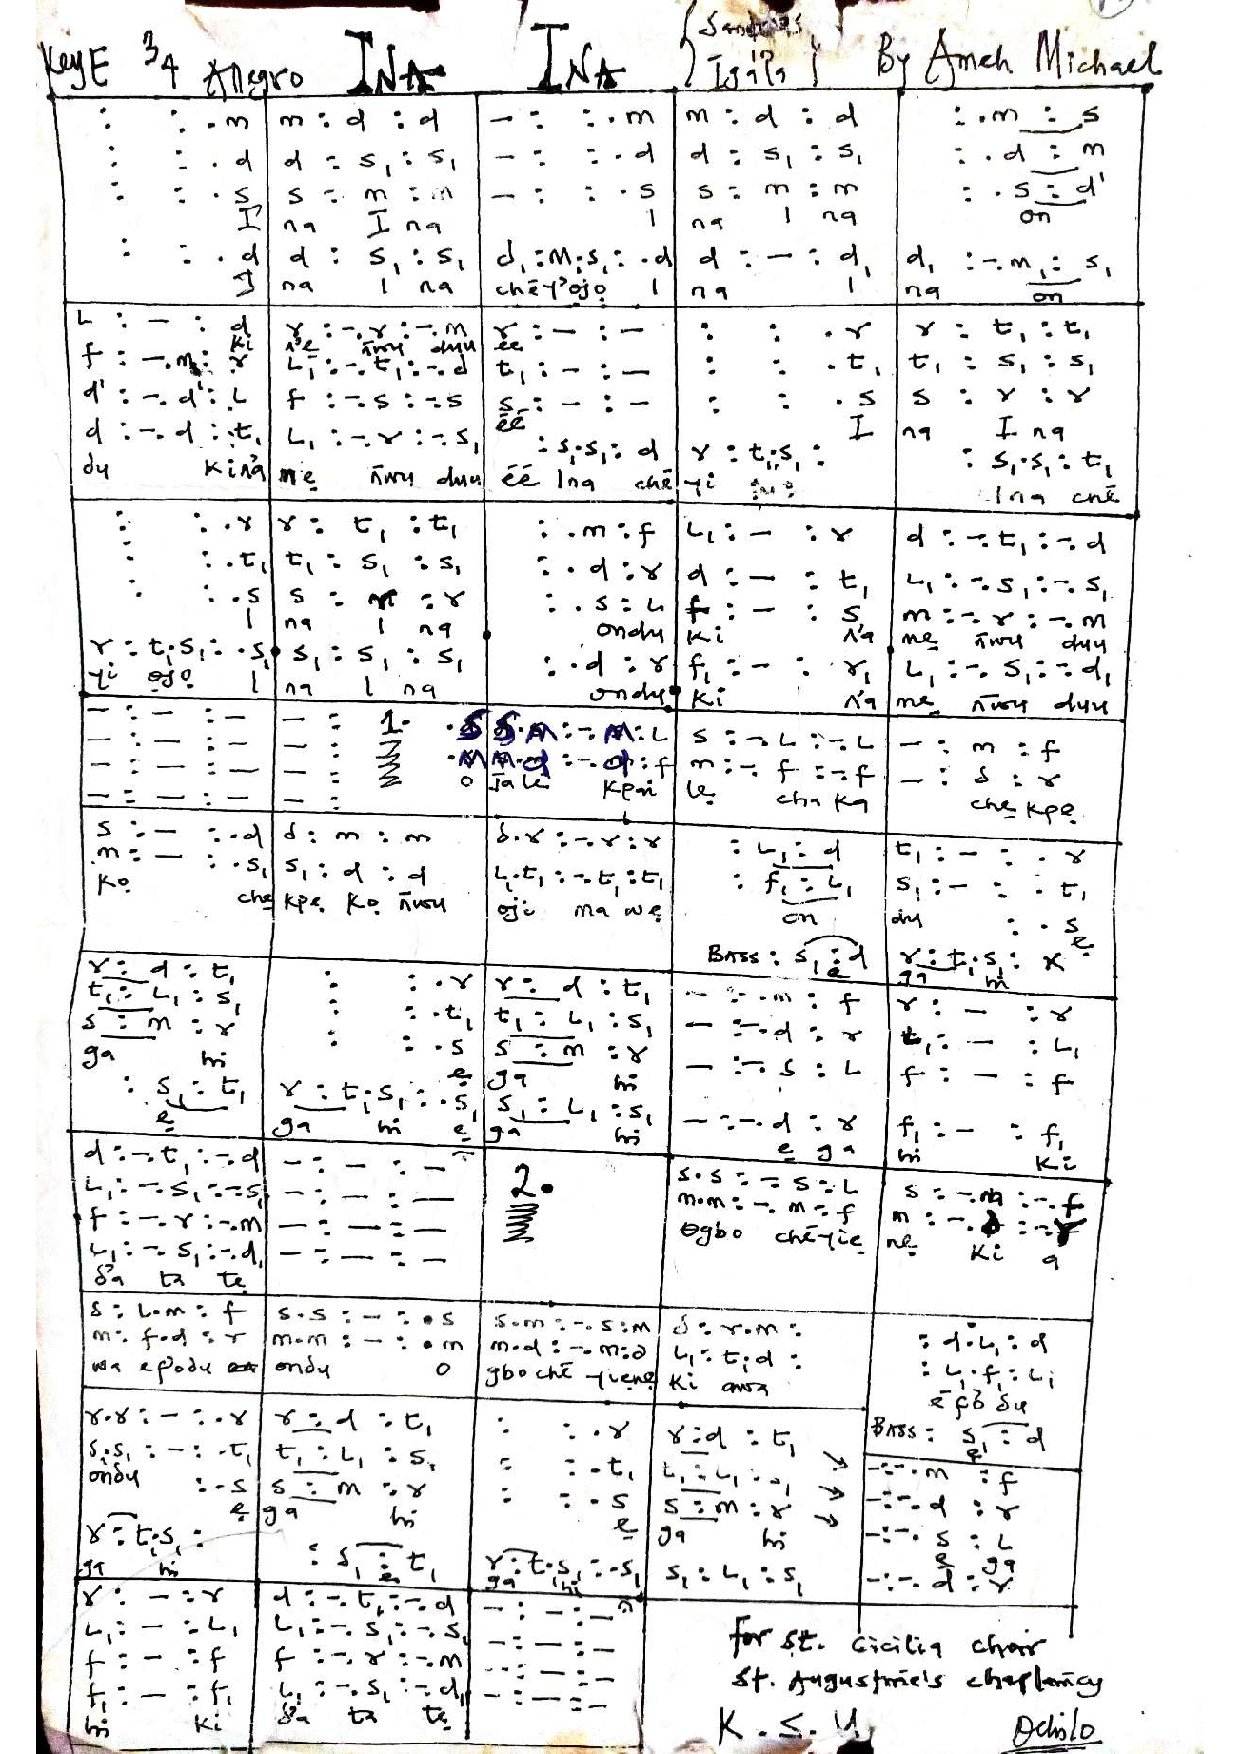 Key E 3/4 Allegro INA INA { Sanctus, in Igala } By Ameh Michael
: : .m | m : d : d | - : : .m | m : d : d | : .m : s
: : .d | d : s₁ : s₁ | - : : .d | d : s₁ : s₁ | : .d : m
: : .s | s : m : m | - : : .s | s : m : m | : .s : d'
I | na I na | I | na I na | on
: : .d | d : s₁ : s₁ | d₁ :m₁.s₁ : .d | d : - : d₁ | d₁ : -.m₁ : s₁
I | na I na | chē y'ojọ I | na I | na on
L : - : d | r : -.r : -.m | r : - : - | : : .r | r : t₁ : t₁
ki | n'ẹ ñwu duu | éé
f : -.m : r | L₁ : -.t₁ : -.d | t₁ : - : - | : : .t₁ | t₁ : s₁ : s₁
d' : -.d' : L | f : -.s : -.s | s : - : - | : : .s | s : r : r
éé | I | na I na
d : -.d : t₁ | L₁ : -.r : -.s₁ | : s₁.s₁ : d | r : t₁.s₁ : | : s₁.s₁ : t₁
du kin'a | mẹ ñwu duu | éé Ina chē | yi ọjọ | Ina chē
: : .r | r : t₁ : t₁ | : .m : f | L₁ : - : r | d : -.t₁ : -.d
: : .t₁ | t₁ : s₁ : s₁ | : .d : r | d : - : t₁ | L₁ : -.s₁ : -.s₁
: : .s | s : m : r | : .s : L | f : - : s | m : -.r : -.m
I | na I na | ondu | ki n'a | mẹ ñwu duu
r : t₁.s₁ : .s₁ | s₁ : s₁ : s₁ | : .d : r | f₁ : - : r₁ | L₁ : -.s₁ : -.d₁
yi ọjọ I | na I na | ondu | ki n'a | mẹ ñwu duu
- : - : - | - : 1. .s | s.m : -.m : L | s : -.L : -.L | - : m : f
- : - : - | - : .m | m.d : -.d : f | m : -.f : -.f | - : d : r
- : - : - | - : o | Ja le kpai | lẹ cha ka | chẹ kpẹ
- : - : - | - :
s : - : .d | d : m : m | d.r : -.r : r | : L₁ : d | t₁ : - : .r
m : - : .s₁ | s₁ : d : d | L₁.t₁ : -.t₁ : t₁ | : f₁ : L₁ | s₁ : - : .t₁
kọ chẹ | kpẹ kọ ñwu | oji ma wẹ | on | du : .s
ẹ
BASS : s₁ : d | r : t₁.s₁ : x
ẹ | ga hi
r : d : t₁ | : : .r | r : d : t₁ | - : -.m : f | r : - : r
t₁ : L₁ : s₁ | : : .t₁ | t₁ : L₁ : s₁ | - : -.d : r | t₁ : - : L₁
s : m : r | : : .s | s : m : r | - : -.s : L | f : - : f
ga hi | ẹ | ga hi
: s₁ : t₁ | r : t₁.s₁ : .s₁ | s₁ : L₁ : s₁ | - : -.d : r | f₁ : - : f₁
ẹ | ga hi ẹ | ga hi | ẹ ga | hi ki
d : -.t₁ : -.d | - : - : - | 2. | s.s : -.s : L | s : -.m : -.f
L₁ : -.s₁ : -.s₁ | - : - : - | m.m : -.m : f | m : -.d : -.r
f : -.r : -.m | - : - : - | ogbo chē yiẹ | nẹ ki a
L₁ : -.s₁ : -.d₁ | - : - : -
d'a ta tẹ
s : L.m : f | s.s : - : .s | s.m : -.s : m | d : r.m : | : d.L₁ : d
m : f.d : r | m.m : - : .m | m.d : -.m : d | L₁ : t₁.d : | : L₁.f₁ : L₁
wa efodu | ondu o | gbo chē yiẹnẹ | ki awa | ẹ fo du
r.r : - : .r | r : d : t₁ | : : .r | r : d : t₁ | BASS : s₁ : d
ẹ
s₁.s₁ : - : .t₁ | t₁ : L₁ : s₁ | : : .t₁ | t₁ : L₁ : s₁ | - : -.m : f
ondu : .s | s : m : r | : : .s | s : m : r | - : -.d : r
ẹ | ga hi | ẹ | ga hi | - : -.s : L
ẹ ga
r : t₁.s₁ : | : s₁ : t₁ | r : t₁.s₁ : .s₁ | s₁ : L₁ : s₁ | - : -.d : r
ga hi | ẹ | ga hi
r : - : r | d : -.t₁ : -.d | - : - : -
L₁ : - : L₁ | L₁ : -.s₁ : -.s₁ | - : - : -
f : - : f | f : -.r : -.m | - : - : -
f₁ : - : f₁ | L₁ : -.s₁ : -.d₁ | - : - : -
hi ki | d'a ta tẹ
For St. Cicilia choir
St. Augustine's chaplaincy
K.S.U. Ochilo